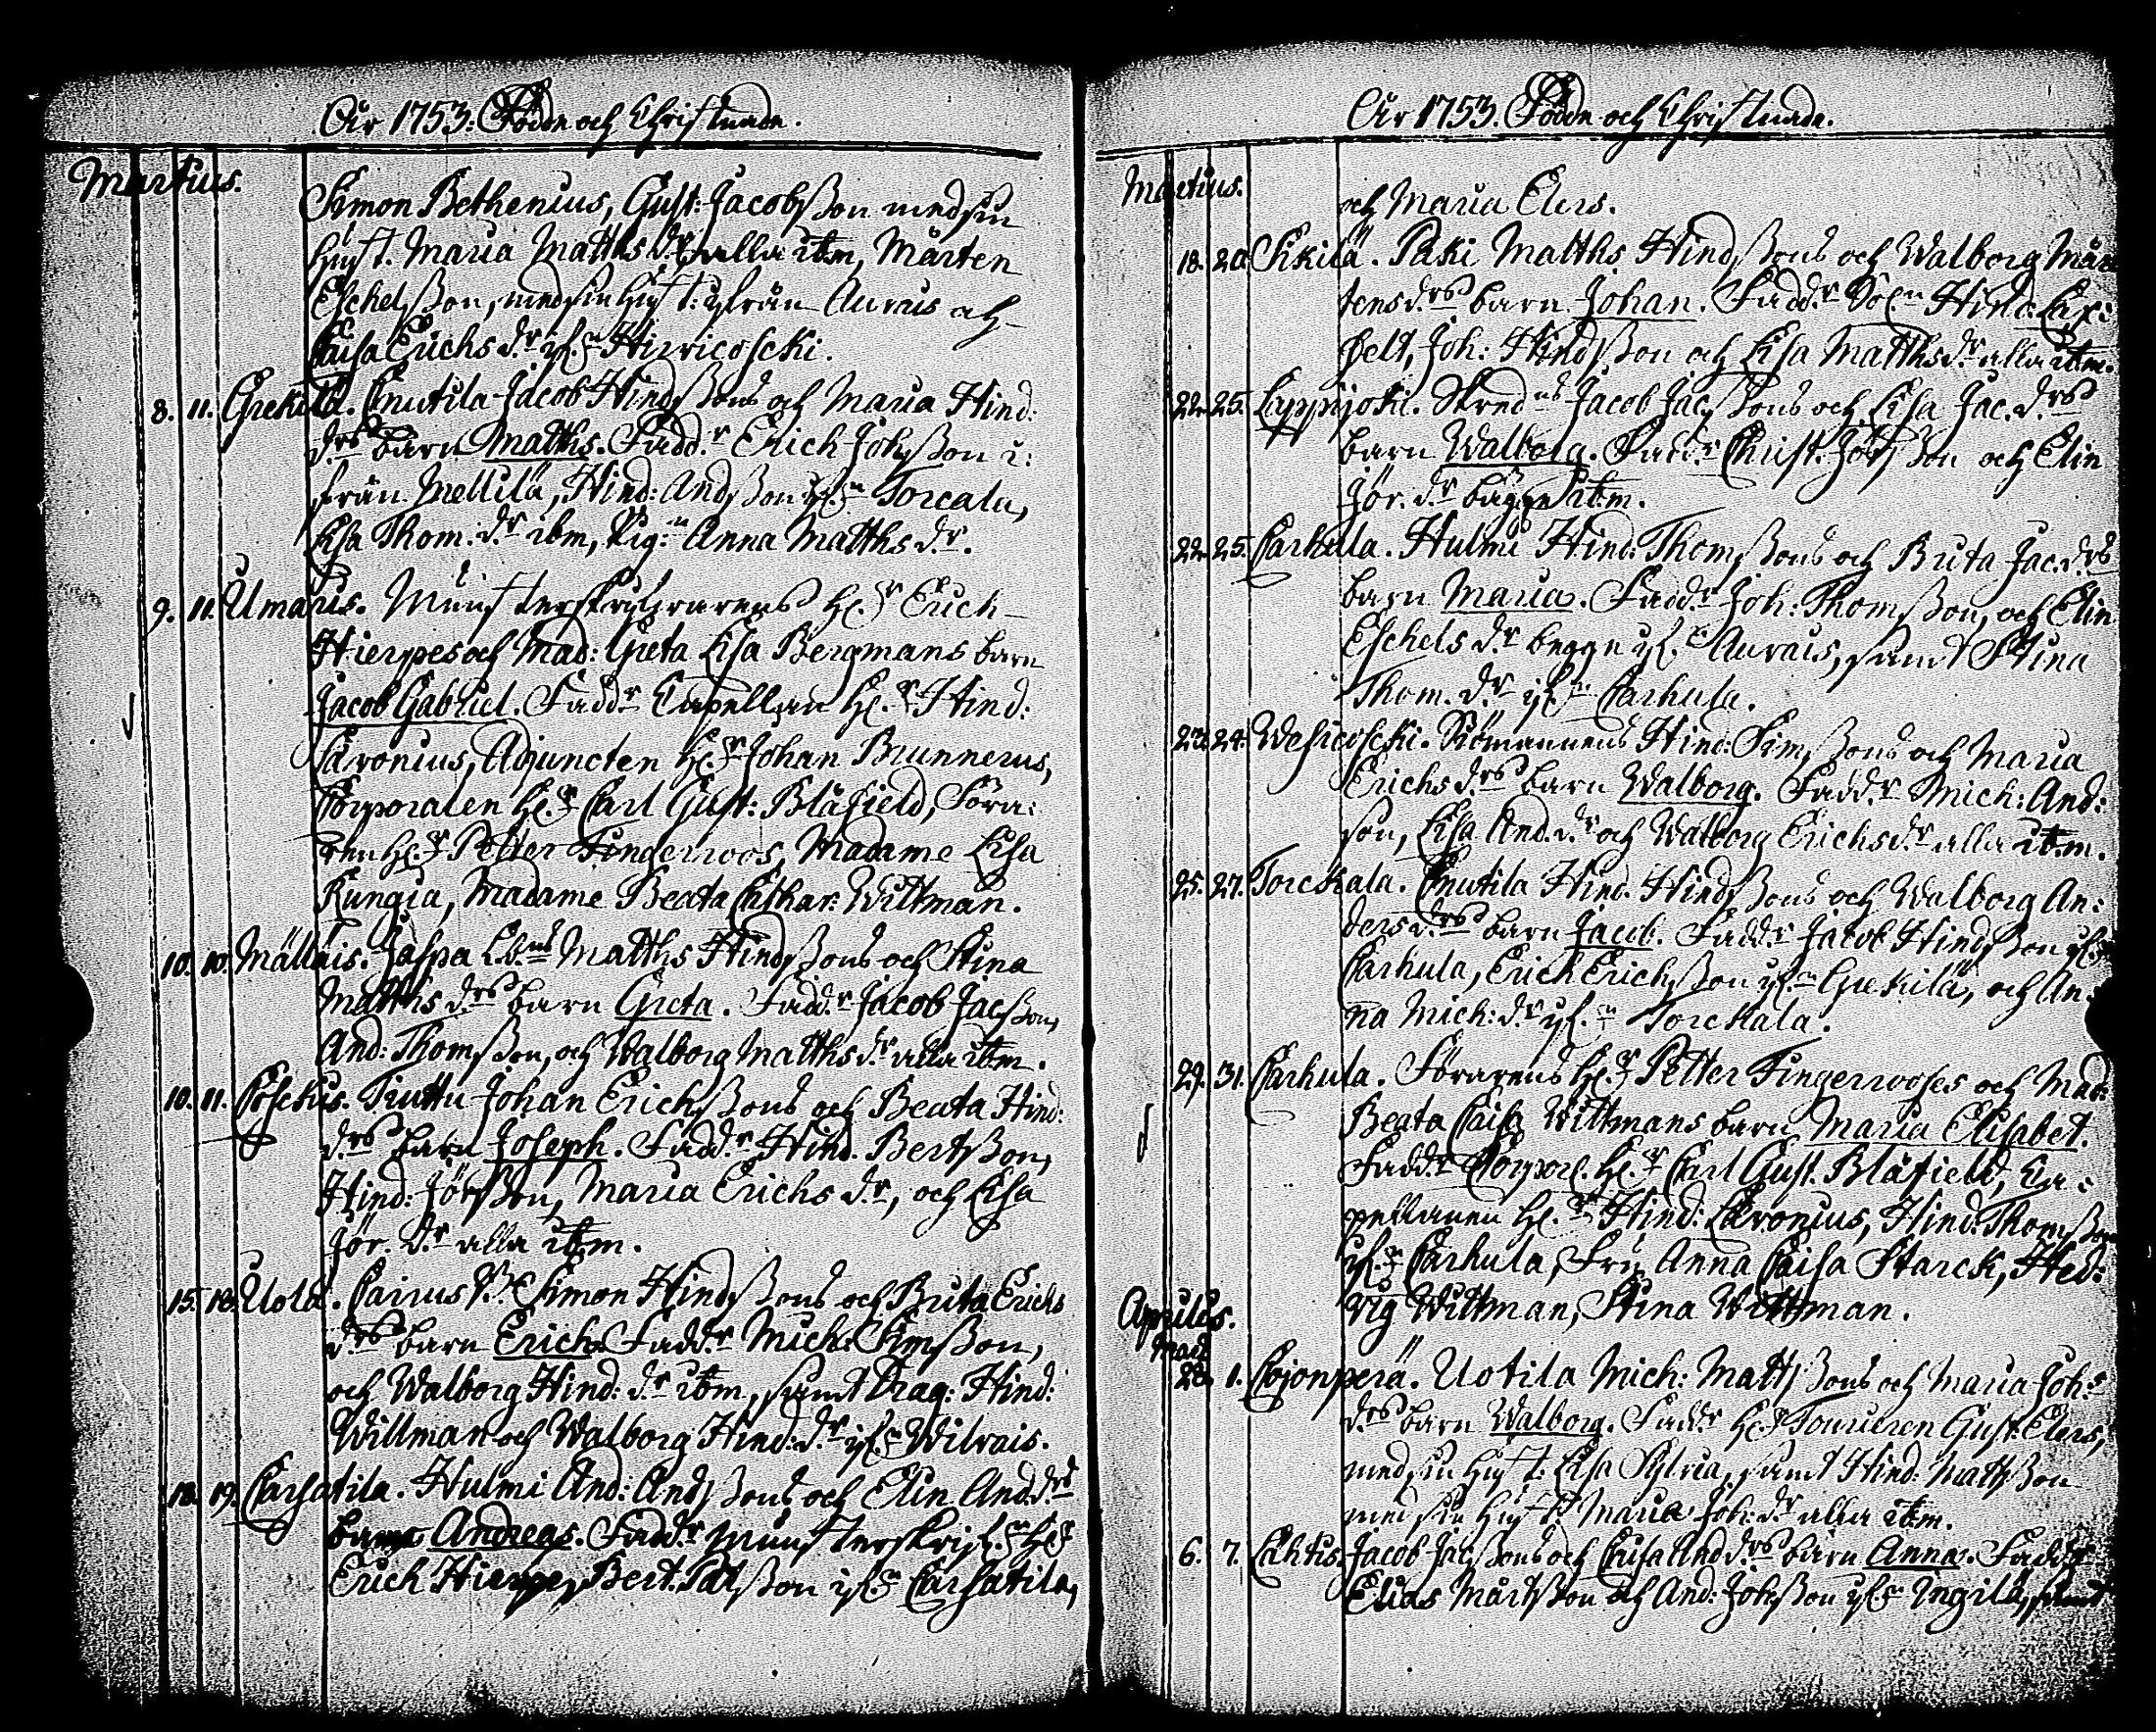 År 1753. Födde och Christnade.
Martius.
Simon Bethenius, Gust: Jacobsson med sin
hust. Maria Matths dr alla ibm, Mårten
Eschelsson, med sin hust: ifrån Aurais och
Caisa Erichs dr if:n Hirvicoscki.
8. 11. Grekilä. Cnutila Jacob Hindssons och Maria Hind:
drs barn Matths. Fadd:r Erich Johsson i:
från Mellilä, Hind: Andsson if:n Torcala,
Lisa Thom. dr ibm, Pig:n Anna Matths dr.
9. 11. Umaris. Munsterskrifvarens H:r Erich
Hierpes och Mad: Greta Lisa Bergmans barn
Jacob Gabriel. Fadd:r Capellan H:r Hind:
Cavonius, Adjuncten H:r Johan Brunnerus,
Corporalen H:r Carl Gust: Blåfield, Föra:
ren H:r Petter Fingerroos, Madame Lisa
Rungia, Madame Beata Cathar: Wittman.
10. 10. Mällais. Jaspa Matths Hindssons och Stina
Matths drs barn Greta. Fadd:r Jacob Jacsson,
And: Thomsson, och Walborg Matths dr alla ibm.
10. 11. Poschus. Tiuttu Johan Erichssons och Beata Hind:
drs barn Joseph. Fadd:r Hind. Bertsson,
Hind: Jörsson, Maria Erichs dr, och Lisa
Jör. dr alla ibm.
15. 18. Uotila. Cairus Simon Hindssons och Brita Erichs
drs barn Erich. Fadd:r Mich: Simsson,
och Walborg Hind: dr ibm, samt Drag: Hind:
Willman och Walborg Hind: dr if:n Wilvais.
18. 19. Carsatila. Hulmi And: Andssons och Elin And. drs
barn Andreas. Fadd:r Munsterskrif:n H:r
Erich Hierpe, Bert. Patsson if:n Carsatila,
År 1753. Födde och Christnade.
Martius.
och Maria Elers.
18. 20. Sikilä. Paki Matths Hindssons och Walborg Mår
tens drs barn Johan. Fadd:r Sol:n Hind:
felt, Joh: Hindsson och Lisa Matths dr alla ibm.
22. 25. Lyppyjoki. Skred:ns Jacob Jacssons och Lisa Jac. drs
barn Walborg. Fadd:r Christ: Jörsson och Elin
Jör. dr bägge ibm.
22. 25. Carhula. Hulmi Hind: Thomssons och Brita Jac. drs
barn Maria. Fadd:r Joh: Thomsson, och Elin
Eschels dr begge if:n Aurais, samt Stina
Thom. dr if:n Carhula.
23. 24. Wesicoscki. Siömannens Hind: Simssons och Maria
Erichs drs barn Walborg. Fadd:r Mich: And:
son, Lisa And. dr och Walborg Erichs dr alla ibm.
25. 27. Torckala. Cnutila Hind. Hindssons och Walborg An:
ders drs barn Jacob. Fadd:r Jacob Hindsson if:n
Carhula, Erich Erichsson if:n Grekilä, och An:
na Mich: dr if:n Torckala.
29. 31. Carhula. Förarens H:r Petter Fingerrooses och Mad:
Beata Caisa Wittmans barn Maria Elisabet.
Fadd:r Corporl. H:r Carl Gust. Blåfield, Ca:
pellanen H:r Hind: Cavonius, Hind: Thomsson
if:n Carhula, Fru Anna Caisa Starck, Hed:
vig Wittman, Stina Wittman.
Aprilis.
Maii
28. 1. Cojonperä. Uotila Mich: Mattssons och Maria Joh:
drs barn Walborg. Fadd:r H:r Gust: Elers,
med sin hust: Lisa Sylvia, samt Hind: Mathsson
med sin hust: Maria Joh: dr alla ibm.
6. 7. Cahtis. Jacob Jacssons och Caisa And drs barn Anna. Fadd:r
Elias Mårtsson och And: Johsson if:n Ingilä, samt